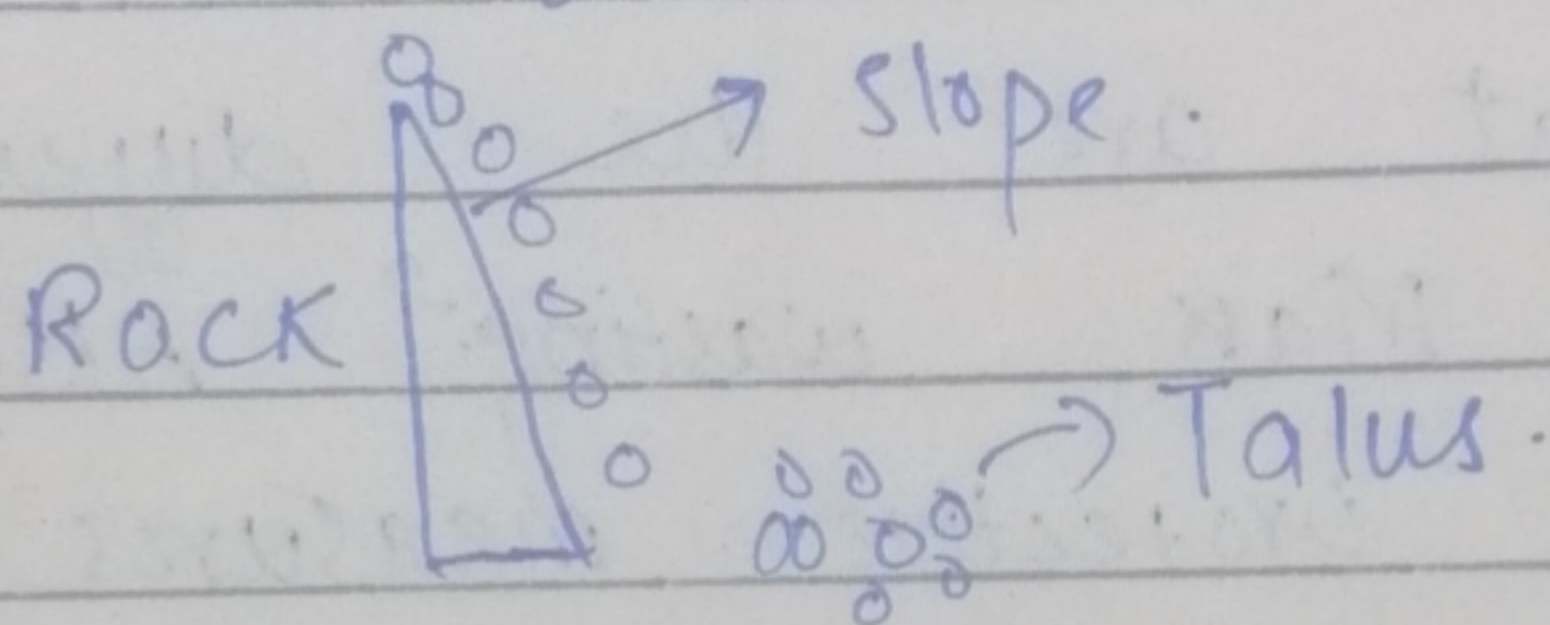 Slope.
Rock
Talus.